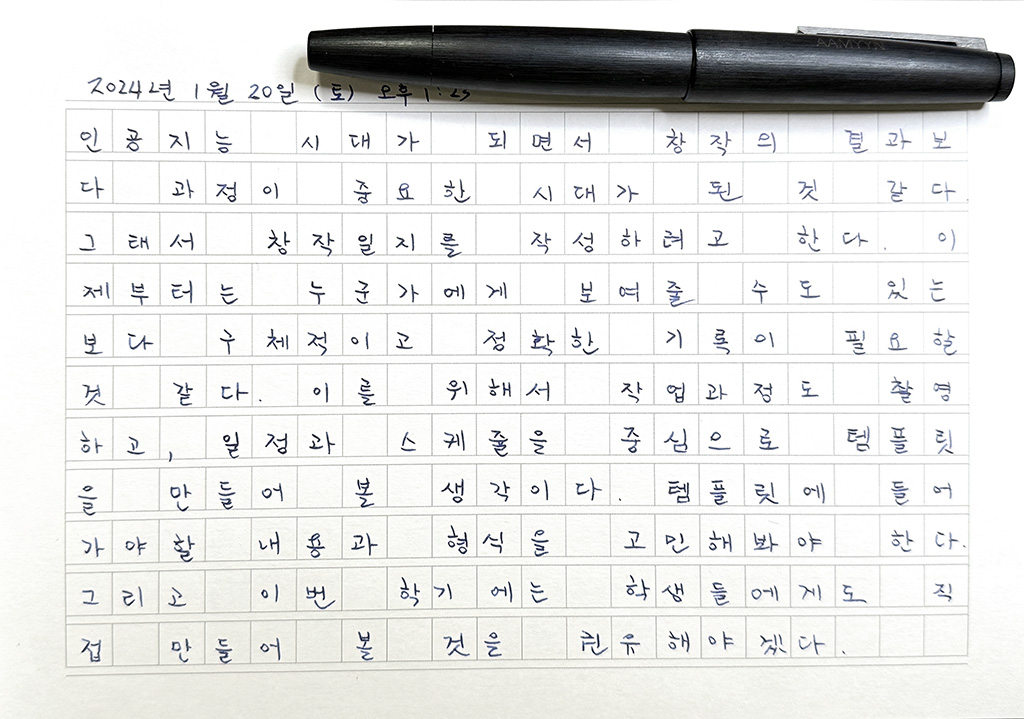 2024년 1월 20일 (토) 오후 1:25
인공지능 시대가 되면서 창작의 결과보
다 과정이 중요한 시대가 된 것 같다.
그래서 창작일지를 작성하려고 한다. 이
제부터는 누군가에게 보여줄 수도 있는
보다 구체적이고 정확한 기록이 필요할
것 같다. 이를 위해서 작업과정도 촬영
하고, 일정과 스케줄을 중심으로 템플릿
을 만들어 볼 생각이다. 템플릿에 들어
가야할 내용과 형식을 고민해봐야 한다.
그리고 이번 학기에는 학생들에게도 직
접 만들어 볼 것을 권유해야겠다.